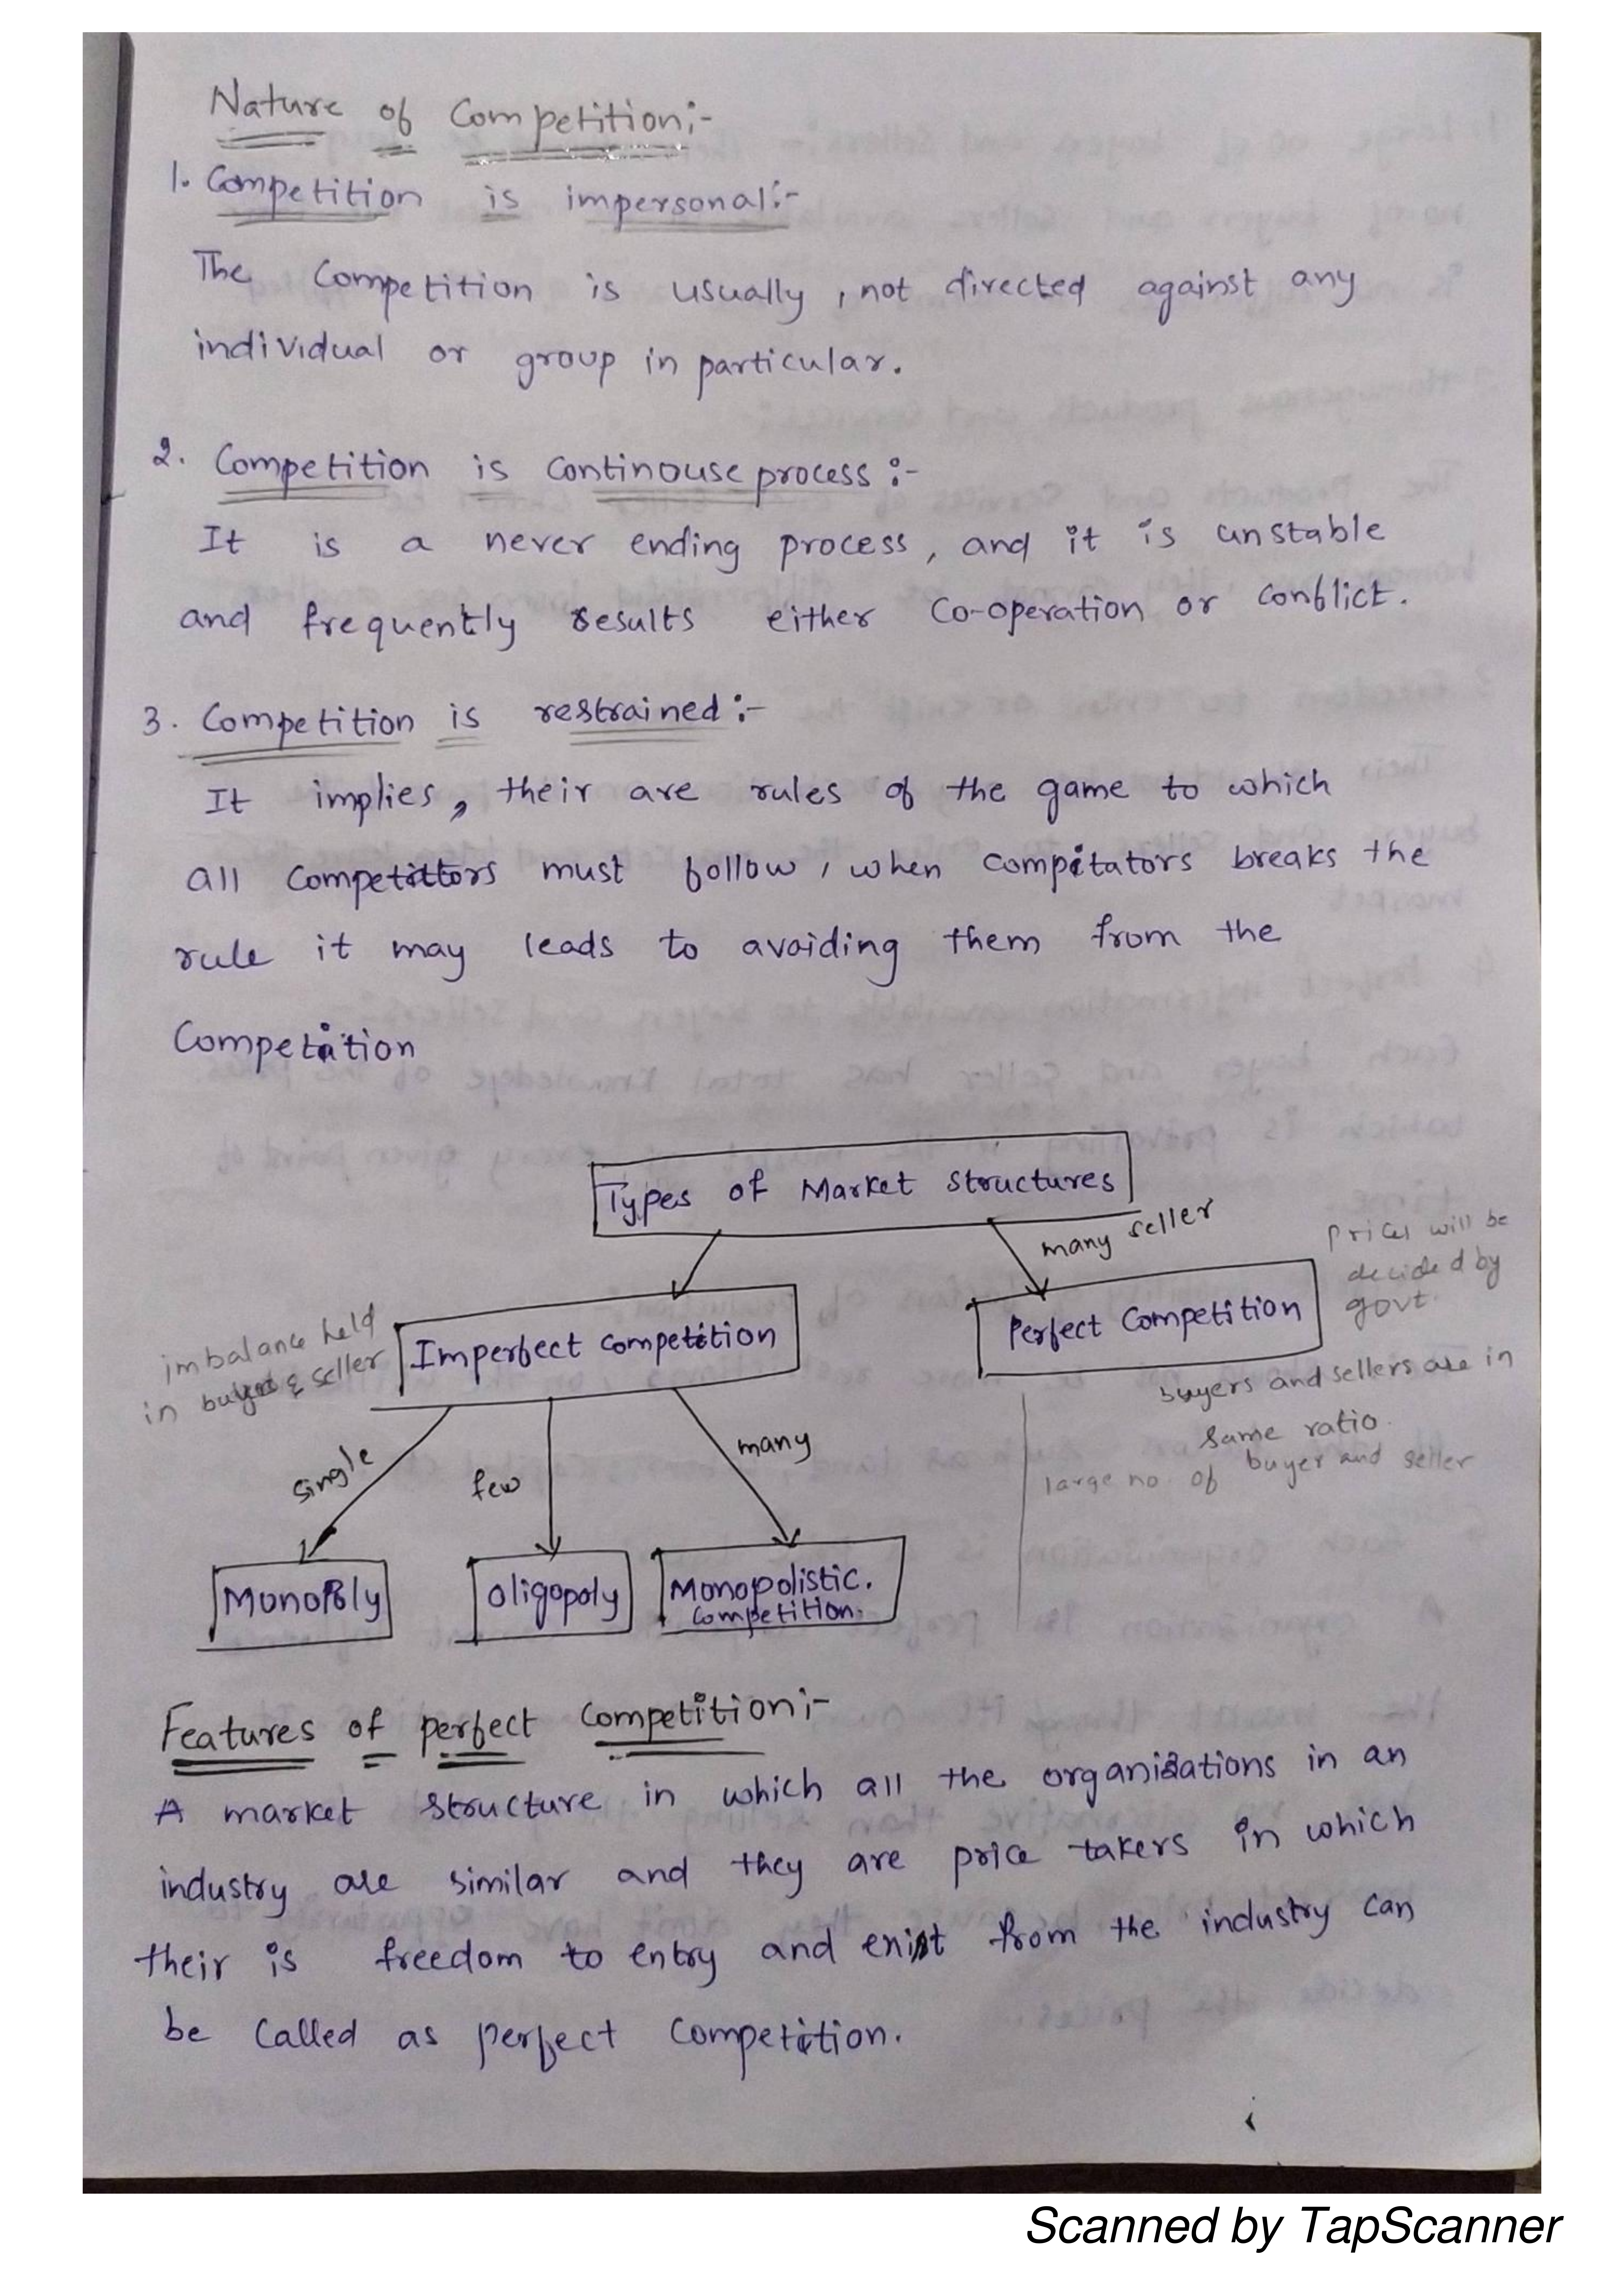 Nature of Competition:-
1. Competition is impersonal:-
The Competition is usually, not directed against any
individual or group in particular.
2. Competition is Continouse process :-
It is a never ending process, and it is unstable
and frequently results either Co-operation or conflict.
3. Competition is restrained :-
It implies, their are rules of the game to which
all competitors must follow, when compitators breaks the
rule it may leads to avoiding them from the
Competition
Types of Market Structures
many seller
prices will be
decided by
govt.
imbalance held
in buyer & seller
Imperfect competition
Perfect Competition
buyers and sellers are in
same ratio.
large no. of buyer and seller
single
few
many
Monopoly
Oligopoly
Monopolistic.
Competition.
Features of perfect Competition:-
A market structure in which all the organizations in an
industry are similar and they are price takers in which
their is freedom to entry and exist from the industry can
be Called as perfect Competition.
Scanned by TapScanner